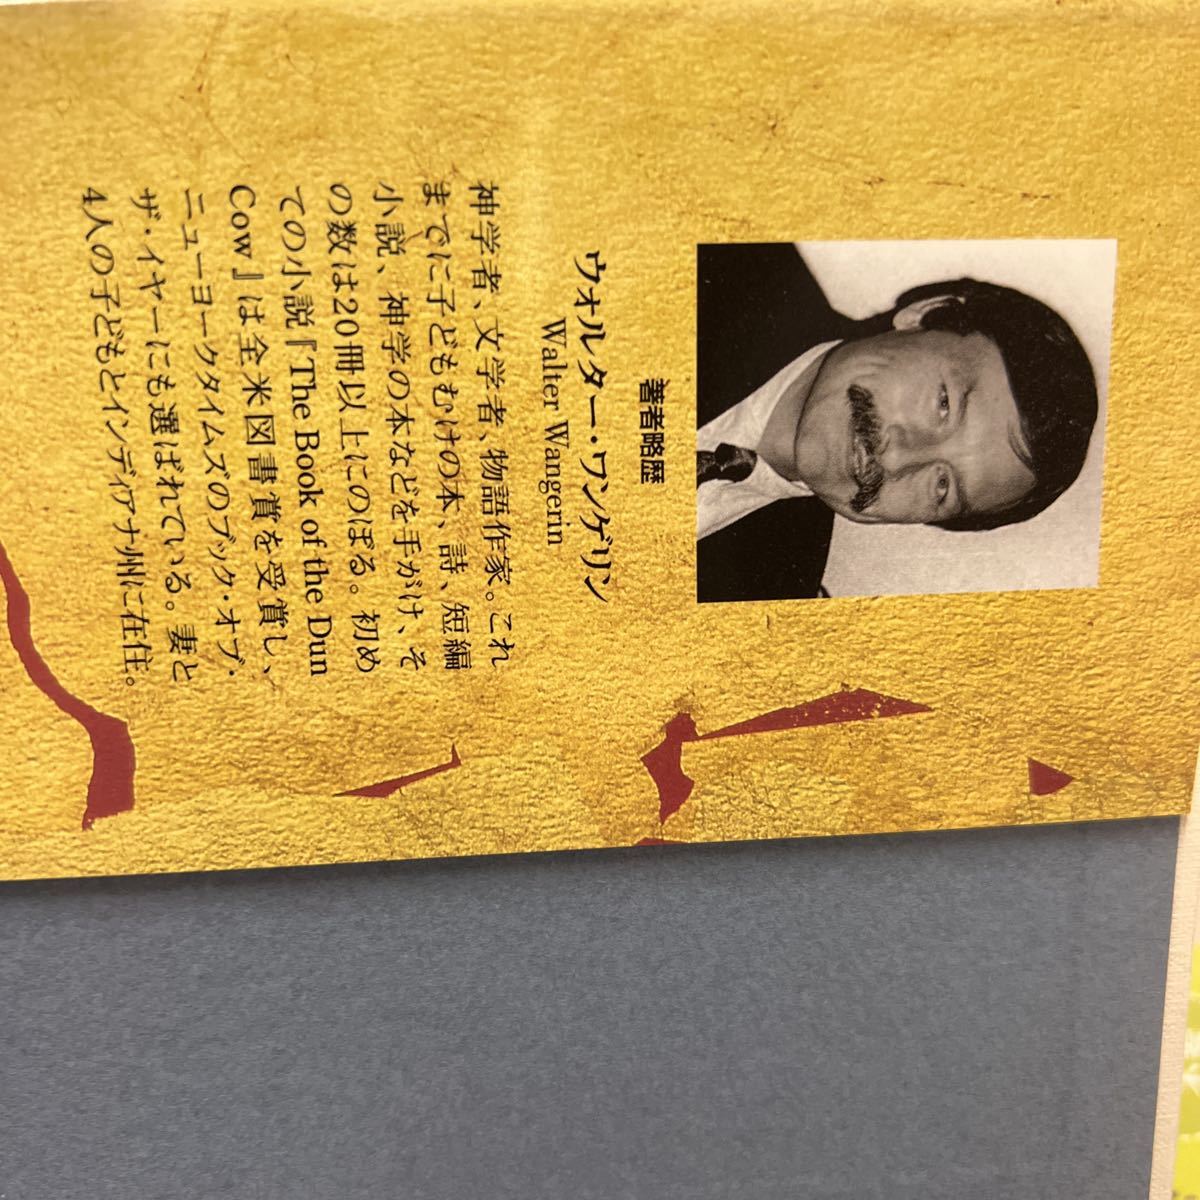 著者略歴
ウォルター・ワンゲリン
Walter Wangerin
神学者、文学者、物語作家。これ
までに子どもむけの本、詩、短編
小説、神学の本などを手がけ、そ
の数は20冊以上にのぼる。初め
ての小説『The Book of the Dun
Cow』は全米図書賞を受賞し、
ニューヨークタイムズのブック・オブ・
ザ・イヤーにも選ばれている。妻と
4人の子どもとインディアナ州に在住。